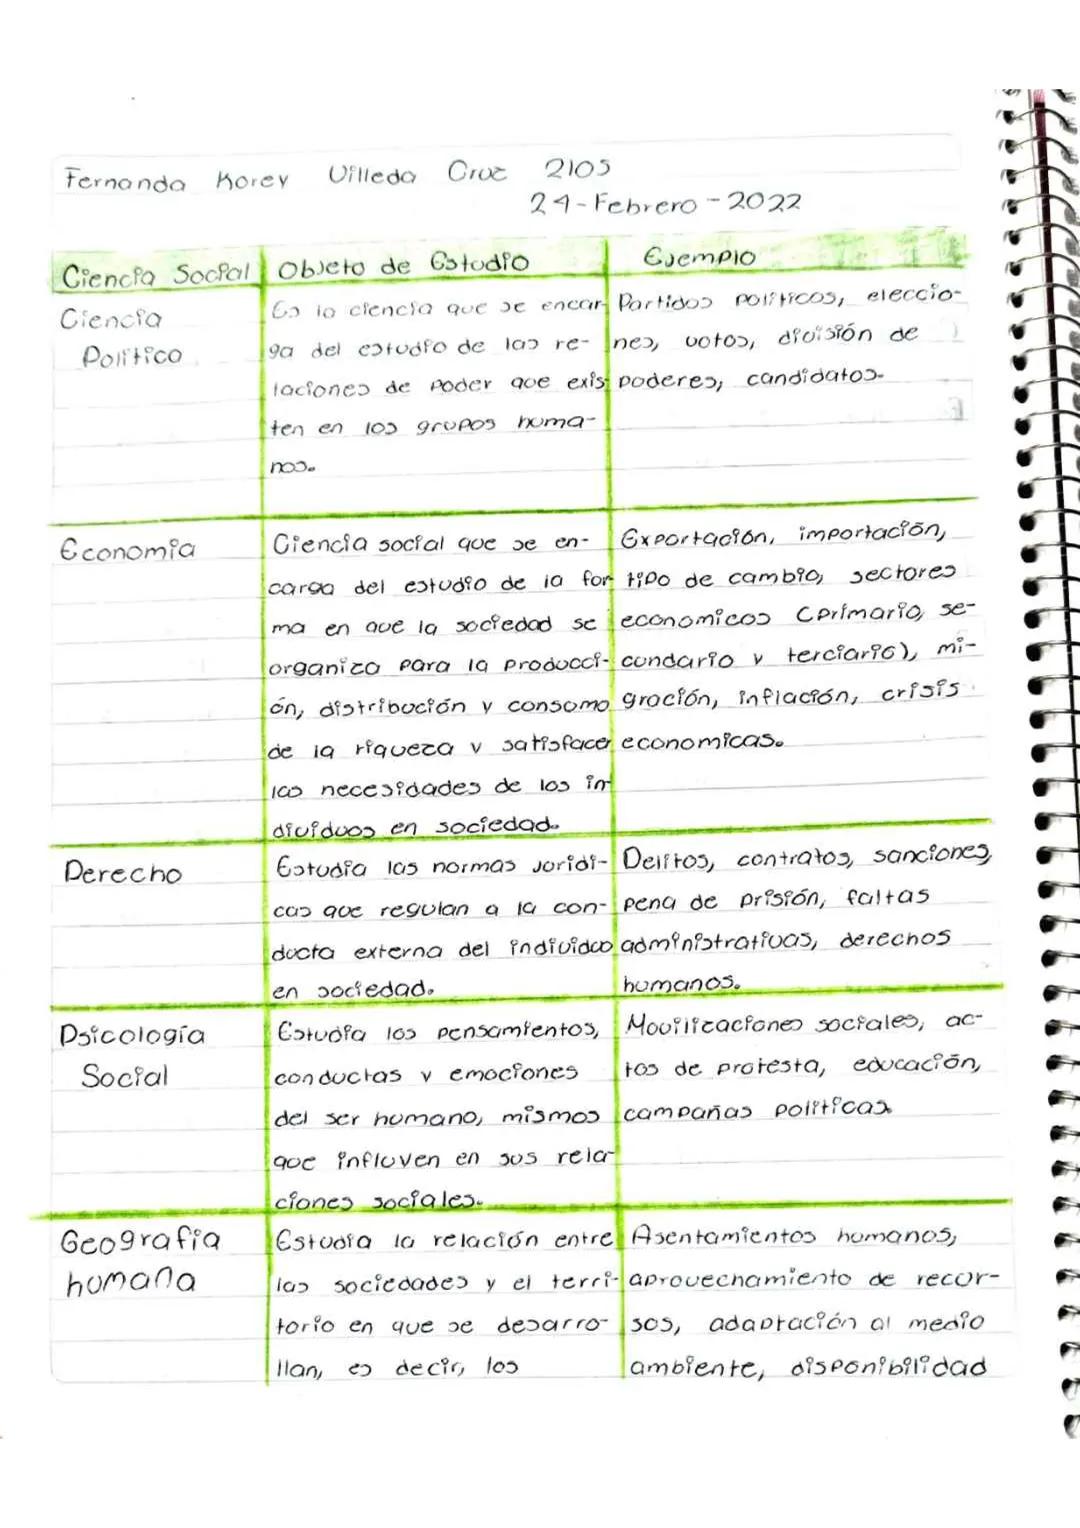 Fernanda Korey Villeda Cruz 2105
24-Febrero-2022
Ciencia Social Objeto de Estudio Ejemplo
Ciencia
Política
Es la ciencia que se encar
ga del estudio de las re-
laciones de poder que exis
ten en los grupos huma-
nos.
Partidos políticos, eleccio-
nes, votos, división de
poderes, candidatos.
Economía
Ciencia social que se en-
carga del estudio de la for
ma en que la sociedad se
organiza para la producci-
ón, distribución y consumo
de la riqueza y satisfacer
las necesidades de los in-
dividuos en sociedad.
Exportación, importación,
tipo de cambio, sectores
economicos (primario, se-
cundario y terciario), mi-
gración, inflación, crisis
economicas.
Derecho
Estudia las normas juridi-
cas que regulan a la con-
ducta externa del individuo
en sociedad.
Delitos, contratos, sanciones,
pena de prisión, faltas
administrativas, derechos
humanos.
Psicología
Social
Estudia los pensamientos,
conductas y emociones
del ser humano, mismos
que influyen en sus rela-
ciones sociales.
Movilizaciones sociales, ac-
tos de protesta, educación,
campañas políticas.
Geografía
humana
Estudia la relación entre
las sociedades y el terri-
torio en que se desarro-
llan, es decir, los
Asentamientos humanos,
aprovechamiento de recur-
sos, adaptación al medio
ambiente, disponibilidad